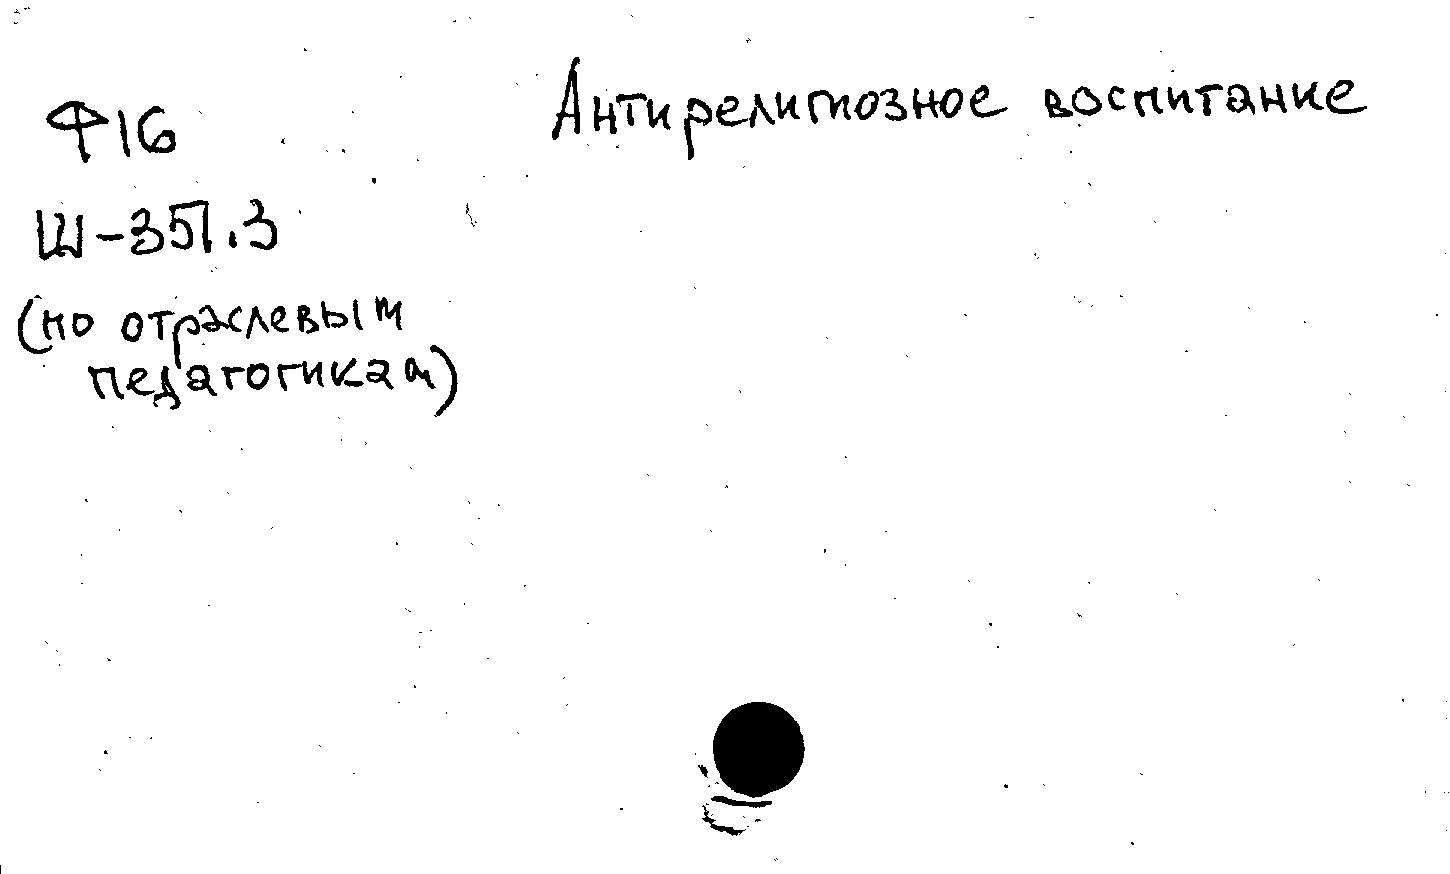 Ф16
Антирелигиозное воспитание
Ш-357.3
(по отраслевым
педагогикам)